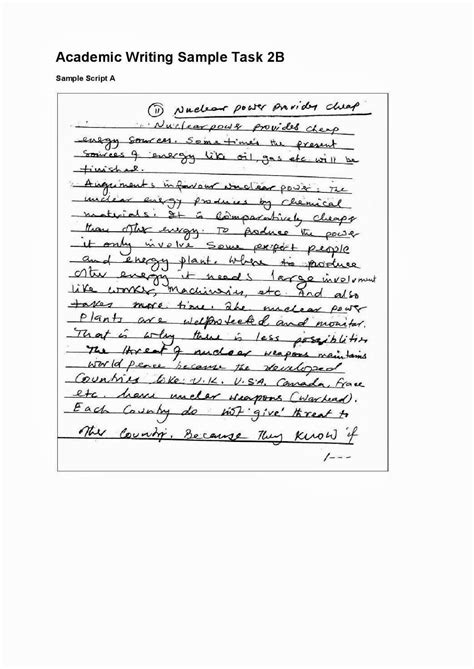 Academic Writing Sample Task 2B
Sample Script A
11 Nuclear power provides cheap
Nuclear power provides cheap
energy sources. Some times the present
sources of energy like oil, gas etc will be
finished.
Arguements in favour nuclear power: The
nuclear energy produces by chemical
materials: It is comparatively cheaper
than other energy. To produce the power
it only involve some expert people
and energy plant. Where to produce
other energy it needs large involvment
like worker, Machineries, etc. And also
takes more time. The nuclear power
Plants are wellprotected and monitor.
That is why there is less possiblities
The threat of nuclear weapons maintains
world peace because the developed
Countries like: U.K. U.S.A, Canada, Frace
etc. have nuclear weapons (warhead).
Each Country do not 'give' threat to
other Country. Because They KNOW if
/---